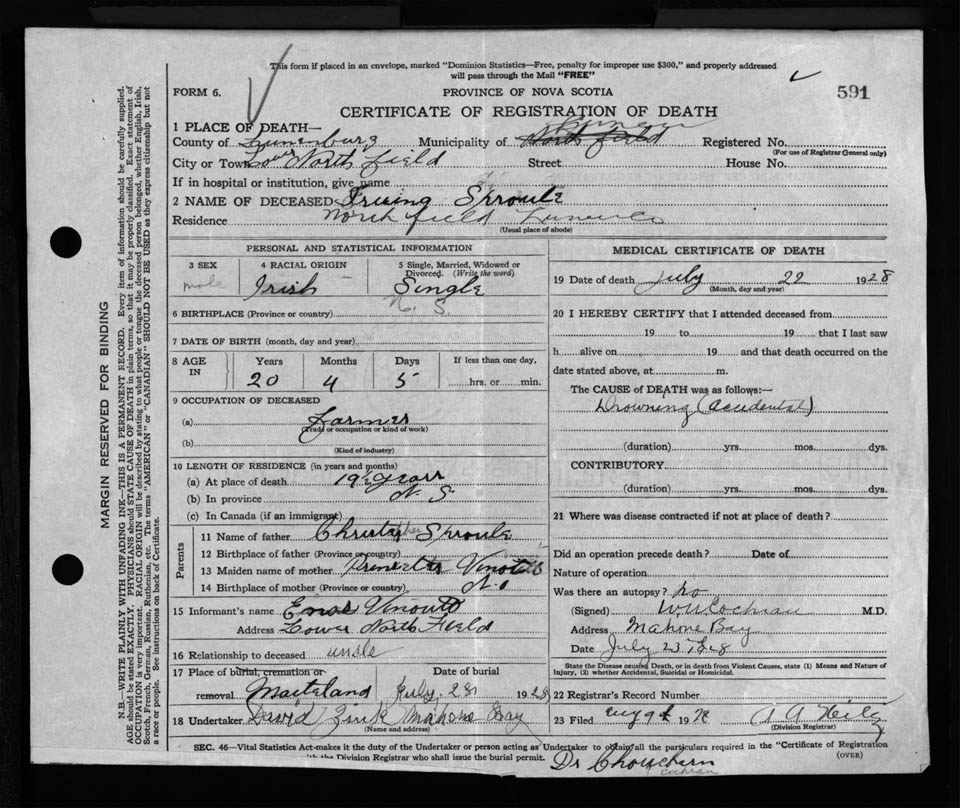 This form if placed in an envelope, marked "Dominion Statistics—Free, penalty for improper use $300," and properly addressed
will pass through the Mail "FREE"
FORM 6.
PROVINCE OF NOVA SCOTIA
591
CERTIFICATE OF REGISTRATION OF DEATH
1 PLACE OF DEATH—
County of Lunenburg Municipality of North field Registered No.
(For use of Registrar General only)
City or Town Lower North field Street House No.
If in hospital or institution, give name
2 NAME OF DECEASED Sproule
Residence North field Lunen Co
(Usual place of abode)
PERSONAL AND STATISTICAL INFORMATION
3 SEX 4 RACIAL ORIGIN 5 Single, Married, Widowed or
Divorced. (Write the word)
male Irish Single
6 BIRTHPLACE (Province or country) N. S.
7 DATE OF BIRTH (month, day and year)
8 AGE IN Years Months Days If less than one day,
20 4 5 hrs. or min.
9 OCCUPATION OF DECEASED
(a) Farmer
(Trade or occupation or kind of work)
(b)
(Kind of industry)
10 LENGTH OF RESIDENCE (in years and months)
(a) At place of death 19½ years
(b) In province N. S.
(c) In Canada (if an immigrant)
Parents
11 Name of father Christopher Sproule
12 Birthplace of father (Province or country)
13 Maiden name of mother
14 Birthplace of mother (Province or country)
15 Informant's name Enos
Address Lower North Field
16 Relationship to deceased uncle
17 Place of burial, cremation or Date of burial
removal Maitland July 25 1928
18 Undertaker David Zink Mahone Bay
(Name and address)
MEDICAL CERTIFICATE OF DEATH
19 Date of death July 22 1928
(Month, day and year)
20 I HEREBY CERTIFY that I attended deceased from
19 to 19 that I last saw
h alive on 19 and that death occurred on the
date stated above, at m.
The CAUSE of DEATH was as follows:—
Drowning (accidental)
(duration) yrs. mos. dys.
CONTRIBUTORY
(duration) yrs. mos. dys.
21 Where was disease contracted if not at place of death?
Did an operation precede death? Date of
Nature of operation
Was there an autopsy? no
(Signed) Cochran M.D.
Address Mahone Bay
Date July 23 1928
State the Disease causing Death, or in death from Violent Causes, state (1) Means and Nature of
Injury, and (2) whether Accidental, Suicidal or Homicidal.
22 Registrar's Record Number
23 Filed Aug 9th 19
(Division Registrar)
SEC. 46—Vital Statistics Act-makes it the duty of the Undertaker or person acting as Undertaker to obtain all the particulars required in the "Certificate of Registration
with the Division Registrar who shall issue the burial permit.
(OVER)
Dr
cochran
MARGIN RESERVED FOR BINDING
N.B.—WRITE PLAINLY WITH UNFADING INK—THIS IS A PERMANENT RECORD. Every item of information should be carefully supplied.
AGE should be stated EXACTLY. PHYSICIANS should STATE CAUSE OF DEATH in plain terms, so that it may be properly classified. Exact statement of
OCCUPATION is very important. RACIAL ORIGIN will be described by stating to what people or tongue the deceased person belonged, whether English, Irish,
Scotch, French, German, Russian, Ruthenian, etc. The terms "AMERICAN" or "CANADIAN" SHOULD NOT BE USED as they express citizenship but not
a race or people. See instructions on back of Certificate.